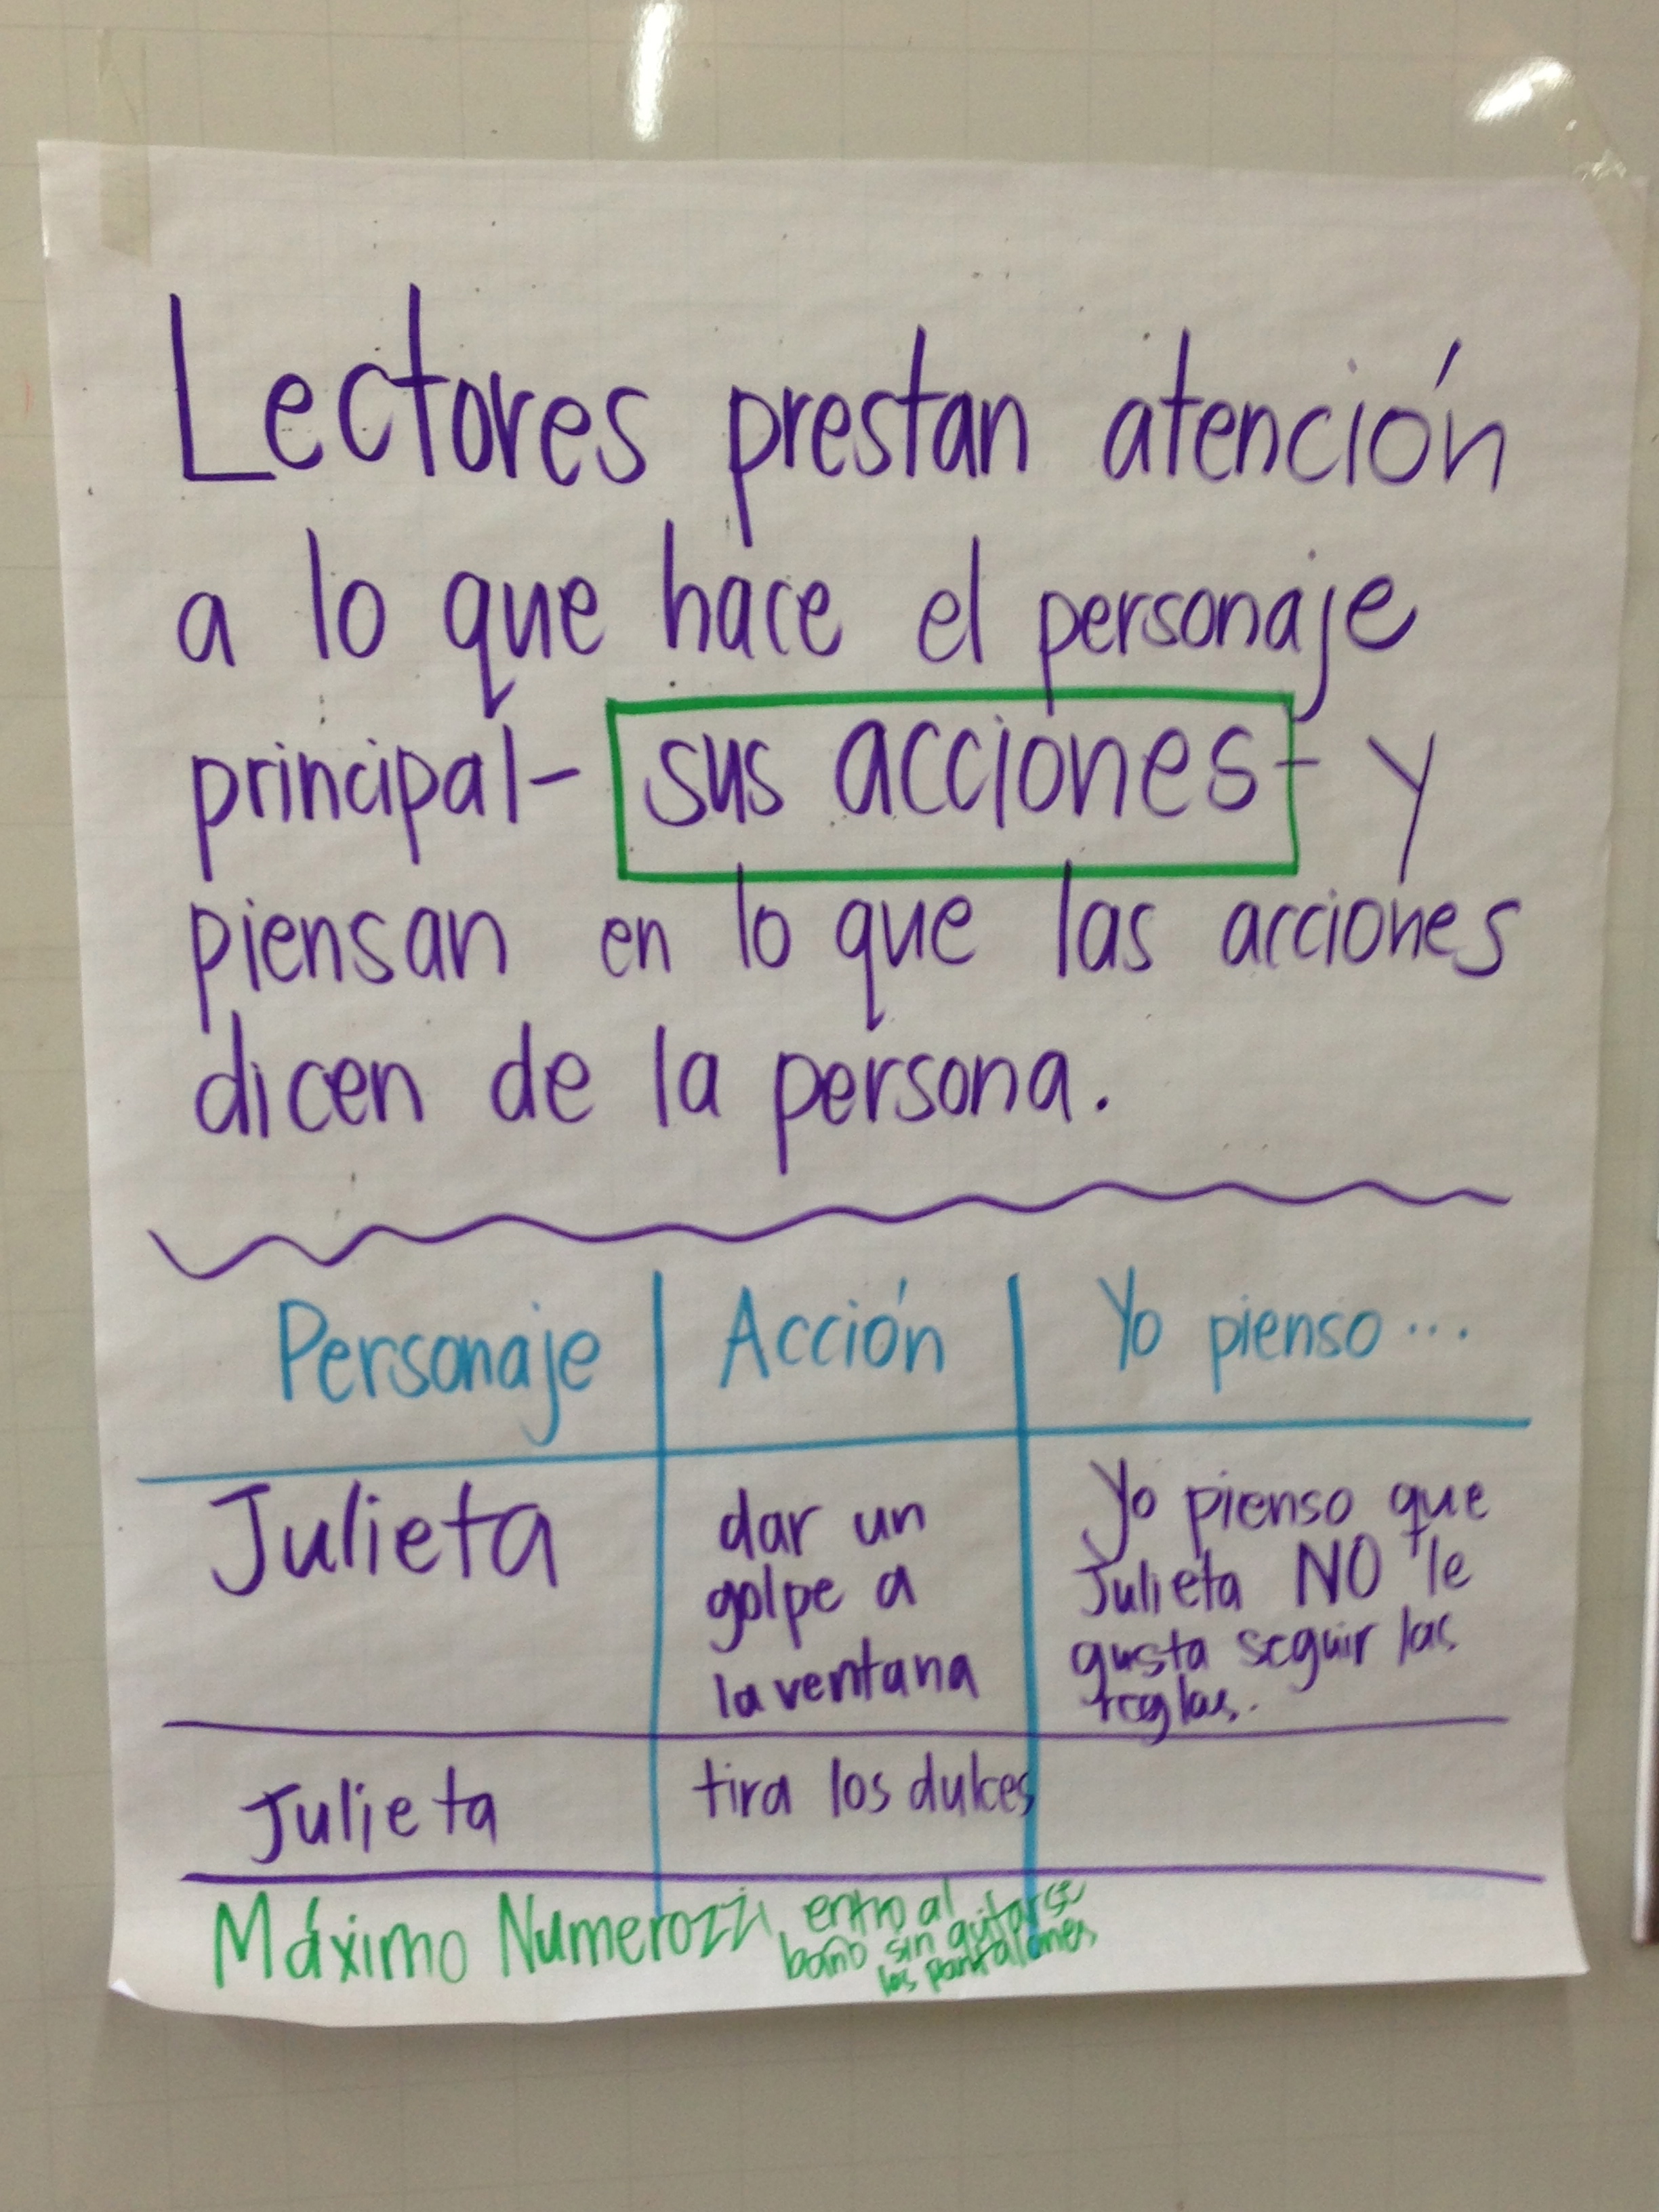 Lectores prestan atención
a lo que hace el personaje
principal- sus acciones- y
piensan en lo que las acciones
dicen de la persona.
Personaje Acción Yo pienso...
Julieta
dar un
golpe a
la ventana
Yo pienso que
Julieta NO le
gusta seguir las
reglas.
Julieta tira los dulces
Máximo Numerozzi
entro al
baño sin quitarse
los pantalones